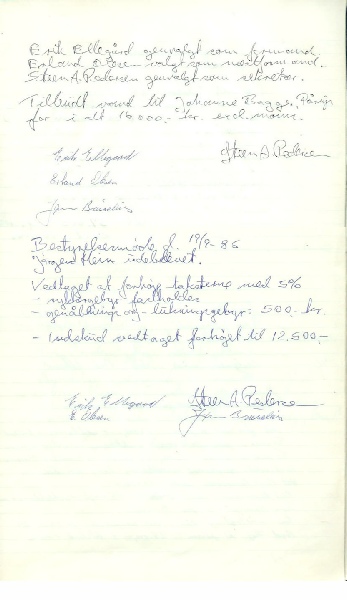 Erik Ellegård genvalgt som formand
Erland Olsen valgt som næstformand.
Steen A. Pedersen genvalgt som sekretær.
Tilbudt vand til Johannes Bagge,
for i alt 16.000,- kr. excl. moms.
Erik Ellegaard
Steen A. Pedersen
Erland Olsen
Bestyrelsesmøde d. 19/9-86
Jørgen Klein udeblevet.
Vedtaget at forhøje taksterne med 5%
- fastholdes
- genåbnings og -lukningsgebyr: 500,- kr.
- Indskud vedtaget forhøjet til 12.500,-
Erik Ellegaard
Steen A. Pedersen
E. Olsen